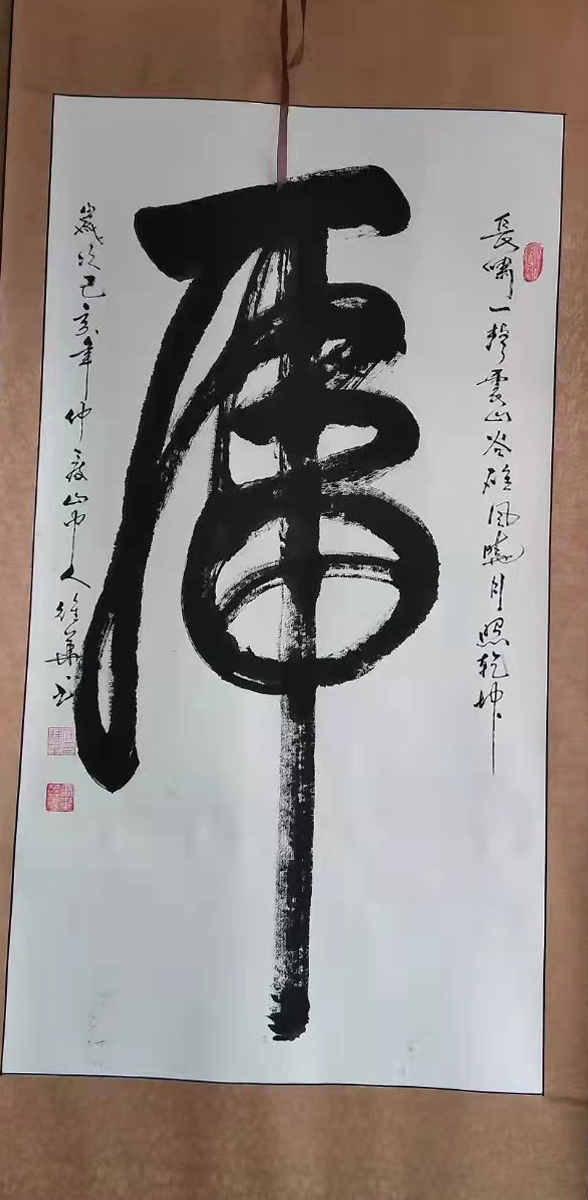 長嘯一聲震山谷雄風曉月照乾坤
虎
歲次己亥年仲夏山中人華書